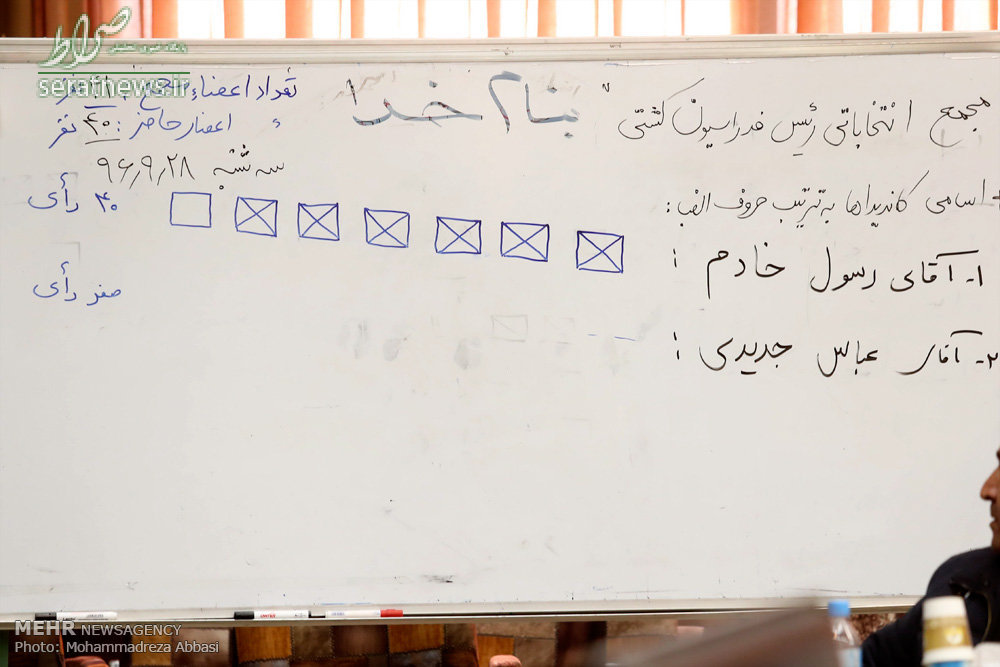 "بنام خدا"
مجمع انتخاباتی رئیس فدراسیون کشتی
تعداد اعضاء مجمع :
اعضاء حاضر : ۴۰ نفر
سه شنبه ۹۶٫۹٫۲۸
اسامی کاندیداها به ترتیب حروف الف ب :
۱- آقای رسول خادم :
۴۰ رأی
۲- آقای عباس جدیدی :
صفر رأی
صراط
seratnews.ir
MEHR NEWSAGENCY
Photo: Mohammadreza Abbasi